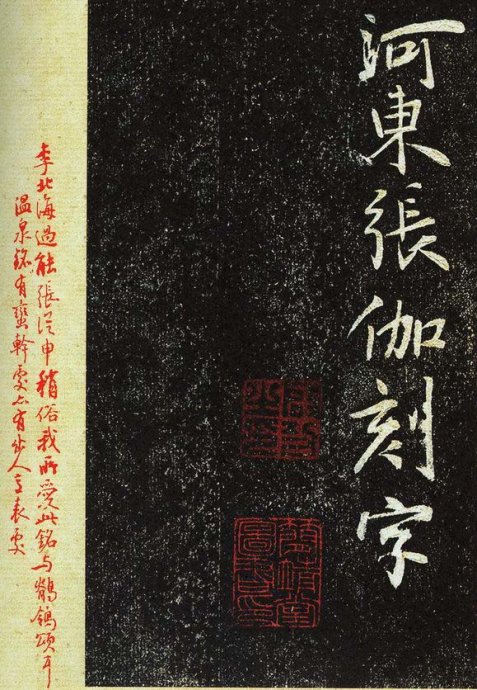 河東張伽刻字
李北海過能張從申稍俗我所愛此銘与鶺鴒頌耳
温泉銘有蠻幹處亦有出人意表處